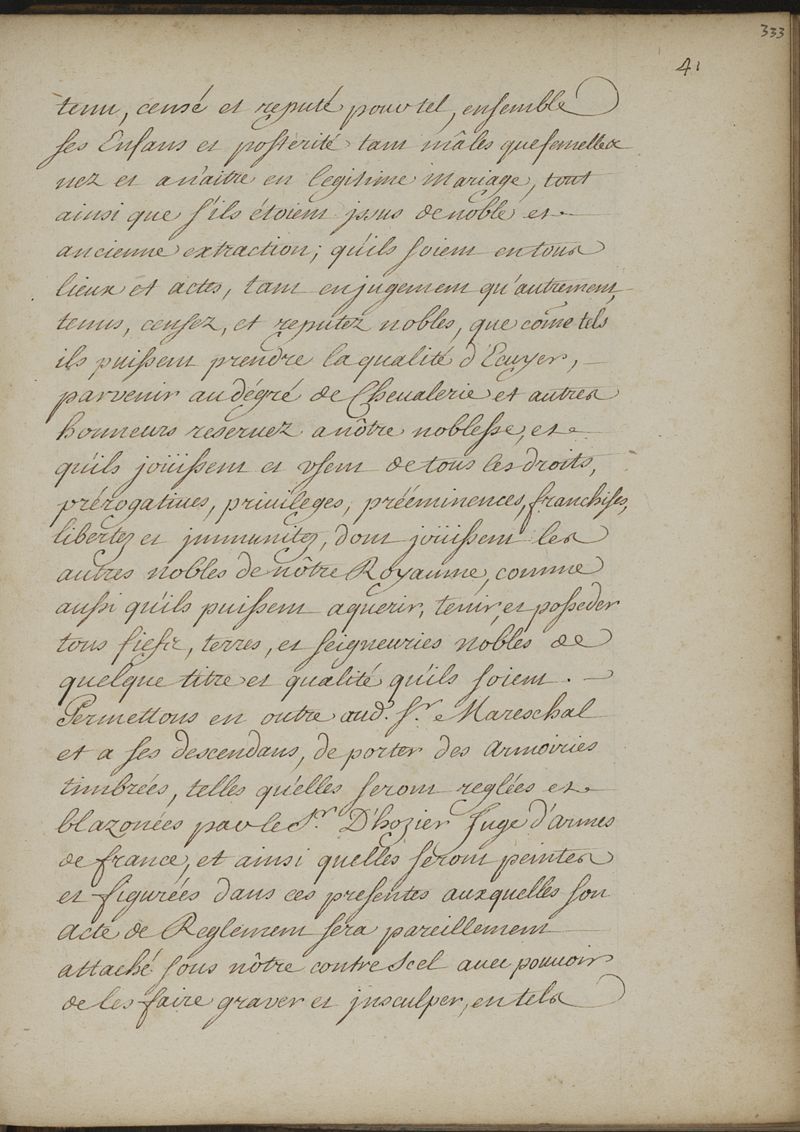 333
41
tenu, censé et reputé pour tel, ensemble
ses Enfans et postérité tant mâles que femelles
nez et a naitre en legitime mariage, tout
ainsi que s'ils étoient jssus de noble et
ancienne extraction; qu'ils soient en tous
lieux et actes, tant en jugement qu'autrement
tenus, censez, et reputez nobles, que côme tels
ils puissent prendre la qualité d'Ecuyer,
parvenir au dégré de Chevalerie et autres
honneurs reservez a nôtre noblesse, et
qu'ils joüissent et vsent de tous les droits,
prérogatiues, priuileges, prééminences, franchises,
libertez et jmmunitez, dont joüissent les
autres nobles de nôtre Royaume, comme
aussi qu'ils puissent aquerir, tenir, et posseder
tous fiefs, terres, et seigneuries nobles de
quelque titre et qualité qu'ils soient.
Permettons en outre aud. Sr. Mareschal
et a ses descendans, de porter des armoiries
timbrées, telles qu'elles seront reglées et
blazonées par le Sr. D'hozier Juge d'armes
de france, et ainsi quelles seront peintes
et figurées dans ces presentes auxquelles son
acte de Reglement sera pareillement
attaché sous nôtre contre Scel auec pouuoir
de les faire grauer et jnsculper, en tels